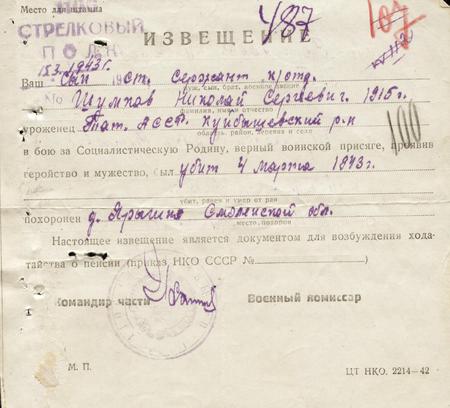 Место для штампа
СТРЕЛКОВЫЙ
ПОЛК
487
ИЗВЕЩЕНИЕ
15.3.1943г.
Ваш сын ст. сержант к/отд.
муж, сын, брат, военное звание
No Шумков Николай Сергеевич. 1915г.
фамилия, имя и отчество
уроженец Тат. АССР. Куйбышевский р-н
область, район, деревня и село
100
в бою за Социалистическую Родину, верный воинской присяге, проявив
геройство и мужество, был убит 4 марта 1943г.
убит, ранен и умер от ран
похоронен д. Ярыгино Смоленской обл.
место похорон
Настоящее извещение является документом для возбуждения хода-
тайства о пенсии (приказ НКО СССР №)
Командир части
Военный комиссар
М. П.
ЦТ НКО. 2214—42